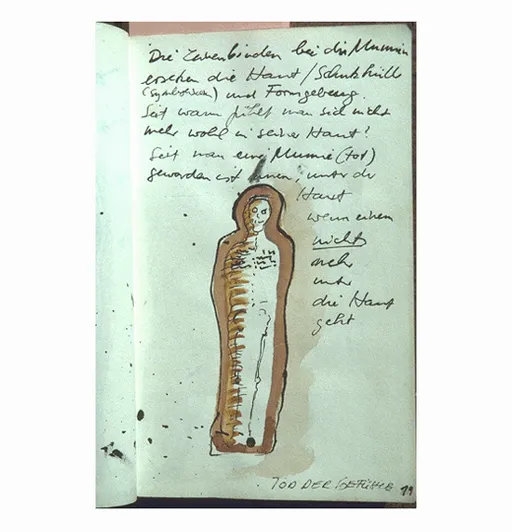 Die                bei der Mumien
ersetzen die Haut / Schutzhülle
(symbolisch) und Formgebung.
Seit wann fühlt man sich nicht
mehr wohl in seiner Haut?
Seit man eine Mumie (tot)
geworden ist innen, unter der
Haut
wenn einem
nicht
mehr
unter
die Haut
geht
TOD DER GEFÜHLE 99